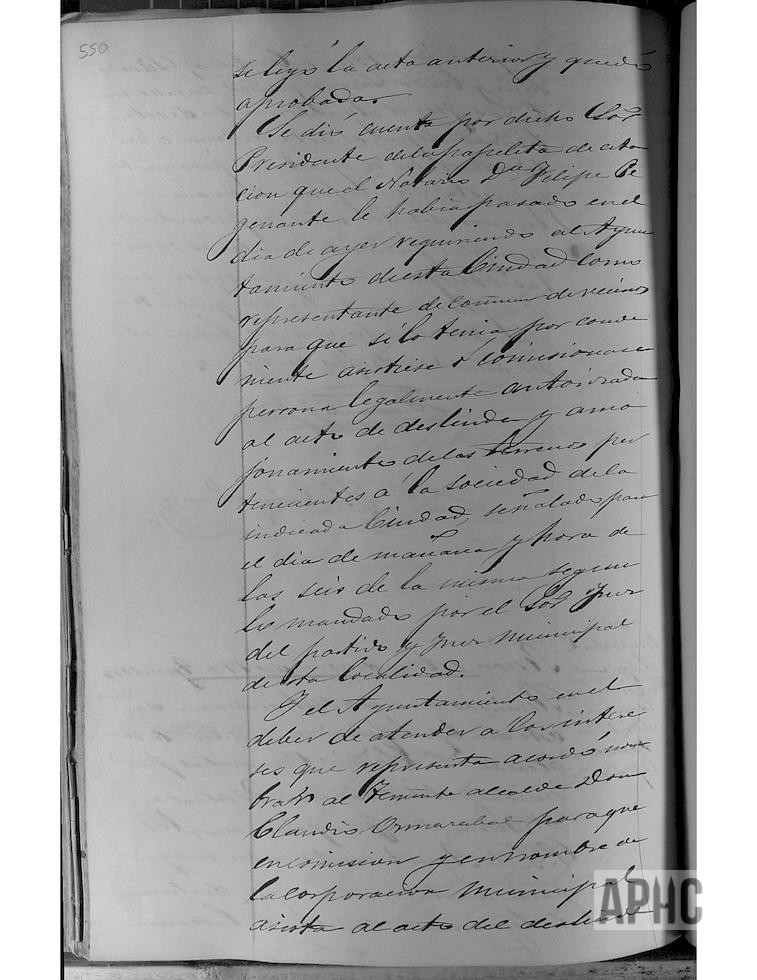 550
se leyó la acta anterior y quedó
aprobada.
Se dió cuenta por dicho Sor
Presidente de la papeleta de cita
cion que el Notario Dn Felipe
genante le habia pasado en el
dia de ayer requiriendo al Ayun
tamiento de esta Ciudad como
representante de comun de vecinos
para que si lo tenia por conve
niente asistiese ó comisionase
persona legalmente autorizada
al acto de deslinde y amo
jonamiento de los terrenos per
tenecientes á la sociedad de la
indicada Ciudad, señalado para
el dia de mañana y hora de
las seis de la misma segun
lo mandado por el Sor Juez
del partido y Juez municipal
de esta localidad.
Y el Ayuntamiento en el
deber de atender a los intere
ses que representa acordó nom
brar al Teniente alcalde Don
Claudio para que
en comision y en nombre de
la corporacion municipal
asista al acto del deslinde
APHC